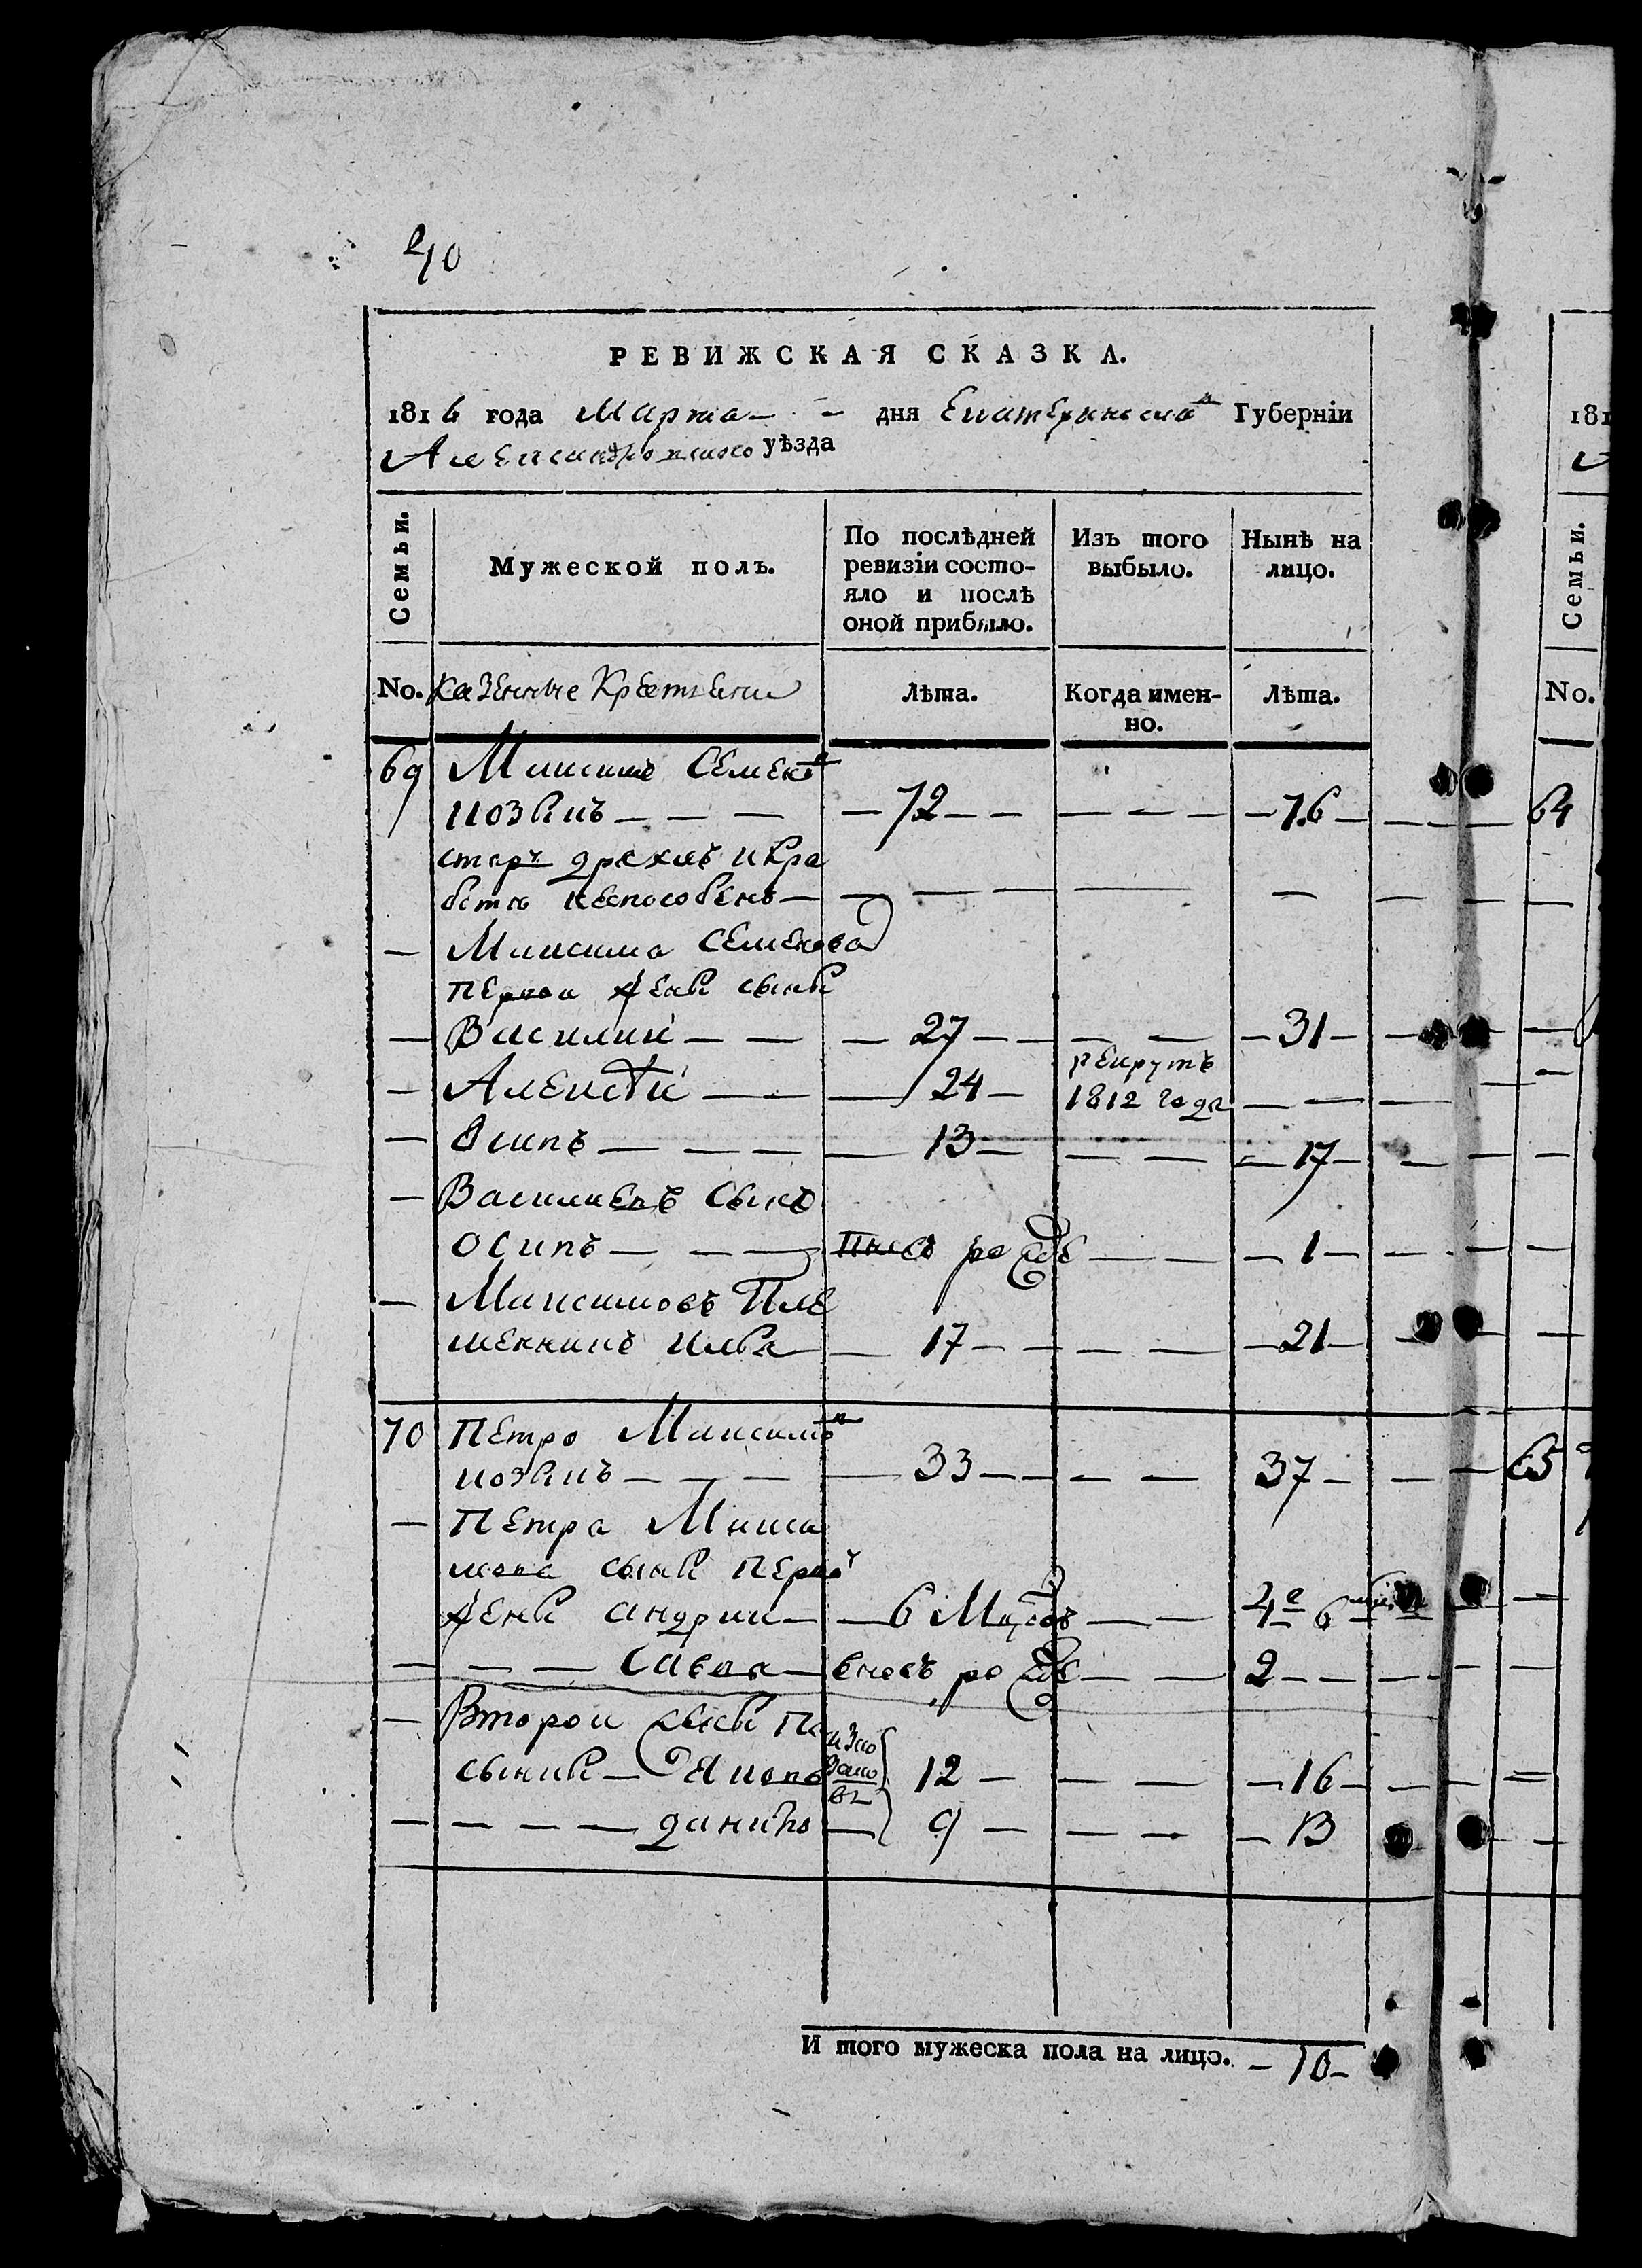 40
РЕВИЖСКАЯ СКАЗКА.
1816 года Марта — — дня Екатериносла Губерніи
Александровского уѣзда
Семьи. Мужеской полъ. По послѣдней ревизіи состо-яло и послѣ оной прибыло. Изъ того выбыло. Нынѣ на лицо.
No. Казенные Крестяни Лѣта. Когда имен-но. Лѣта.
69 Максимъ Семено
козакъ — — — — 72 — — — — — — 76 —
старъ дряхлъ и кра
боти неспособенъ —
— Максима Семенова
первои жени сыни
— Василий — — — 27 — — — — — 31 —
— Алексѣй — — — 24 — рекрутъ 1812 года — — —
— Осипъ — — — — 13 — — — — 17 —
— Василиевъ сынъ
Осипъ — — — вновь рожде — — — 1 —
— Максимовъ Пле
менникъ Илья — — 17 — — — — — 21 —
70 Петро Максимо
козакъ — — — — 33 — — — — 37 —
— Петра Макси
мова сыни перво
жени Андрии — — 6 Мцовъ — — 4 е 6
— — — Савва — вновь рожде — — 2 — —
— Второи жени па
сынки — Яковъ 12 — — — — 16 —
— — — — данило — 9 — — — — 13
И того мужеска пола на лицо. — 10 —
181
Семьи.
No.
64
65